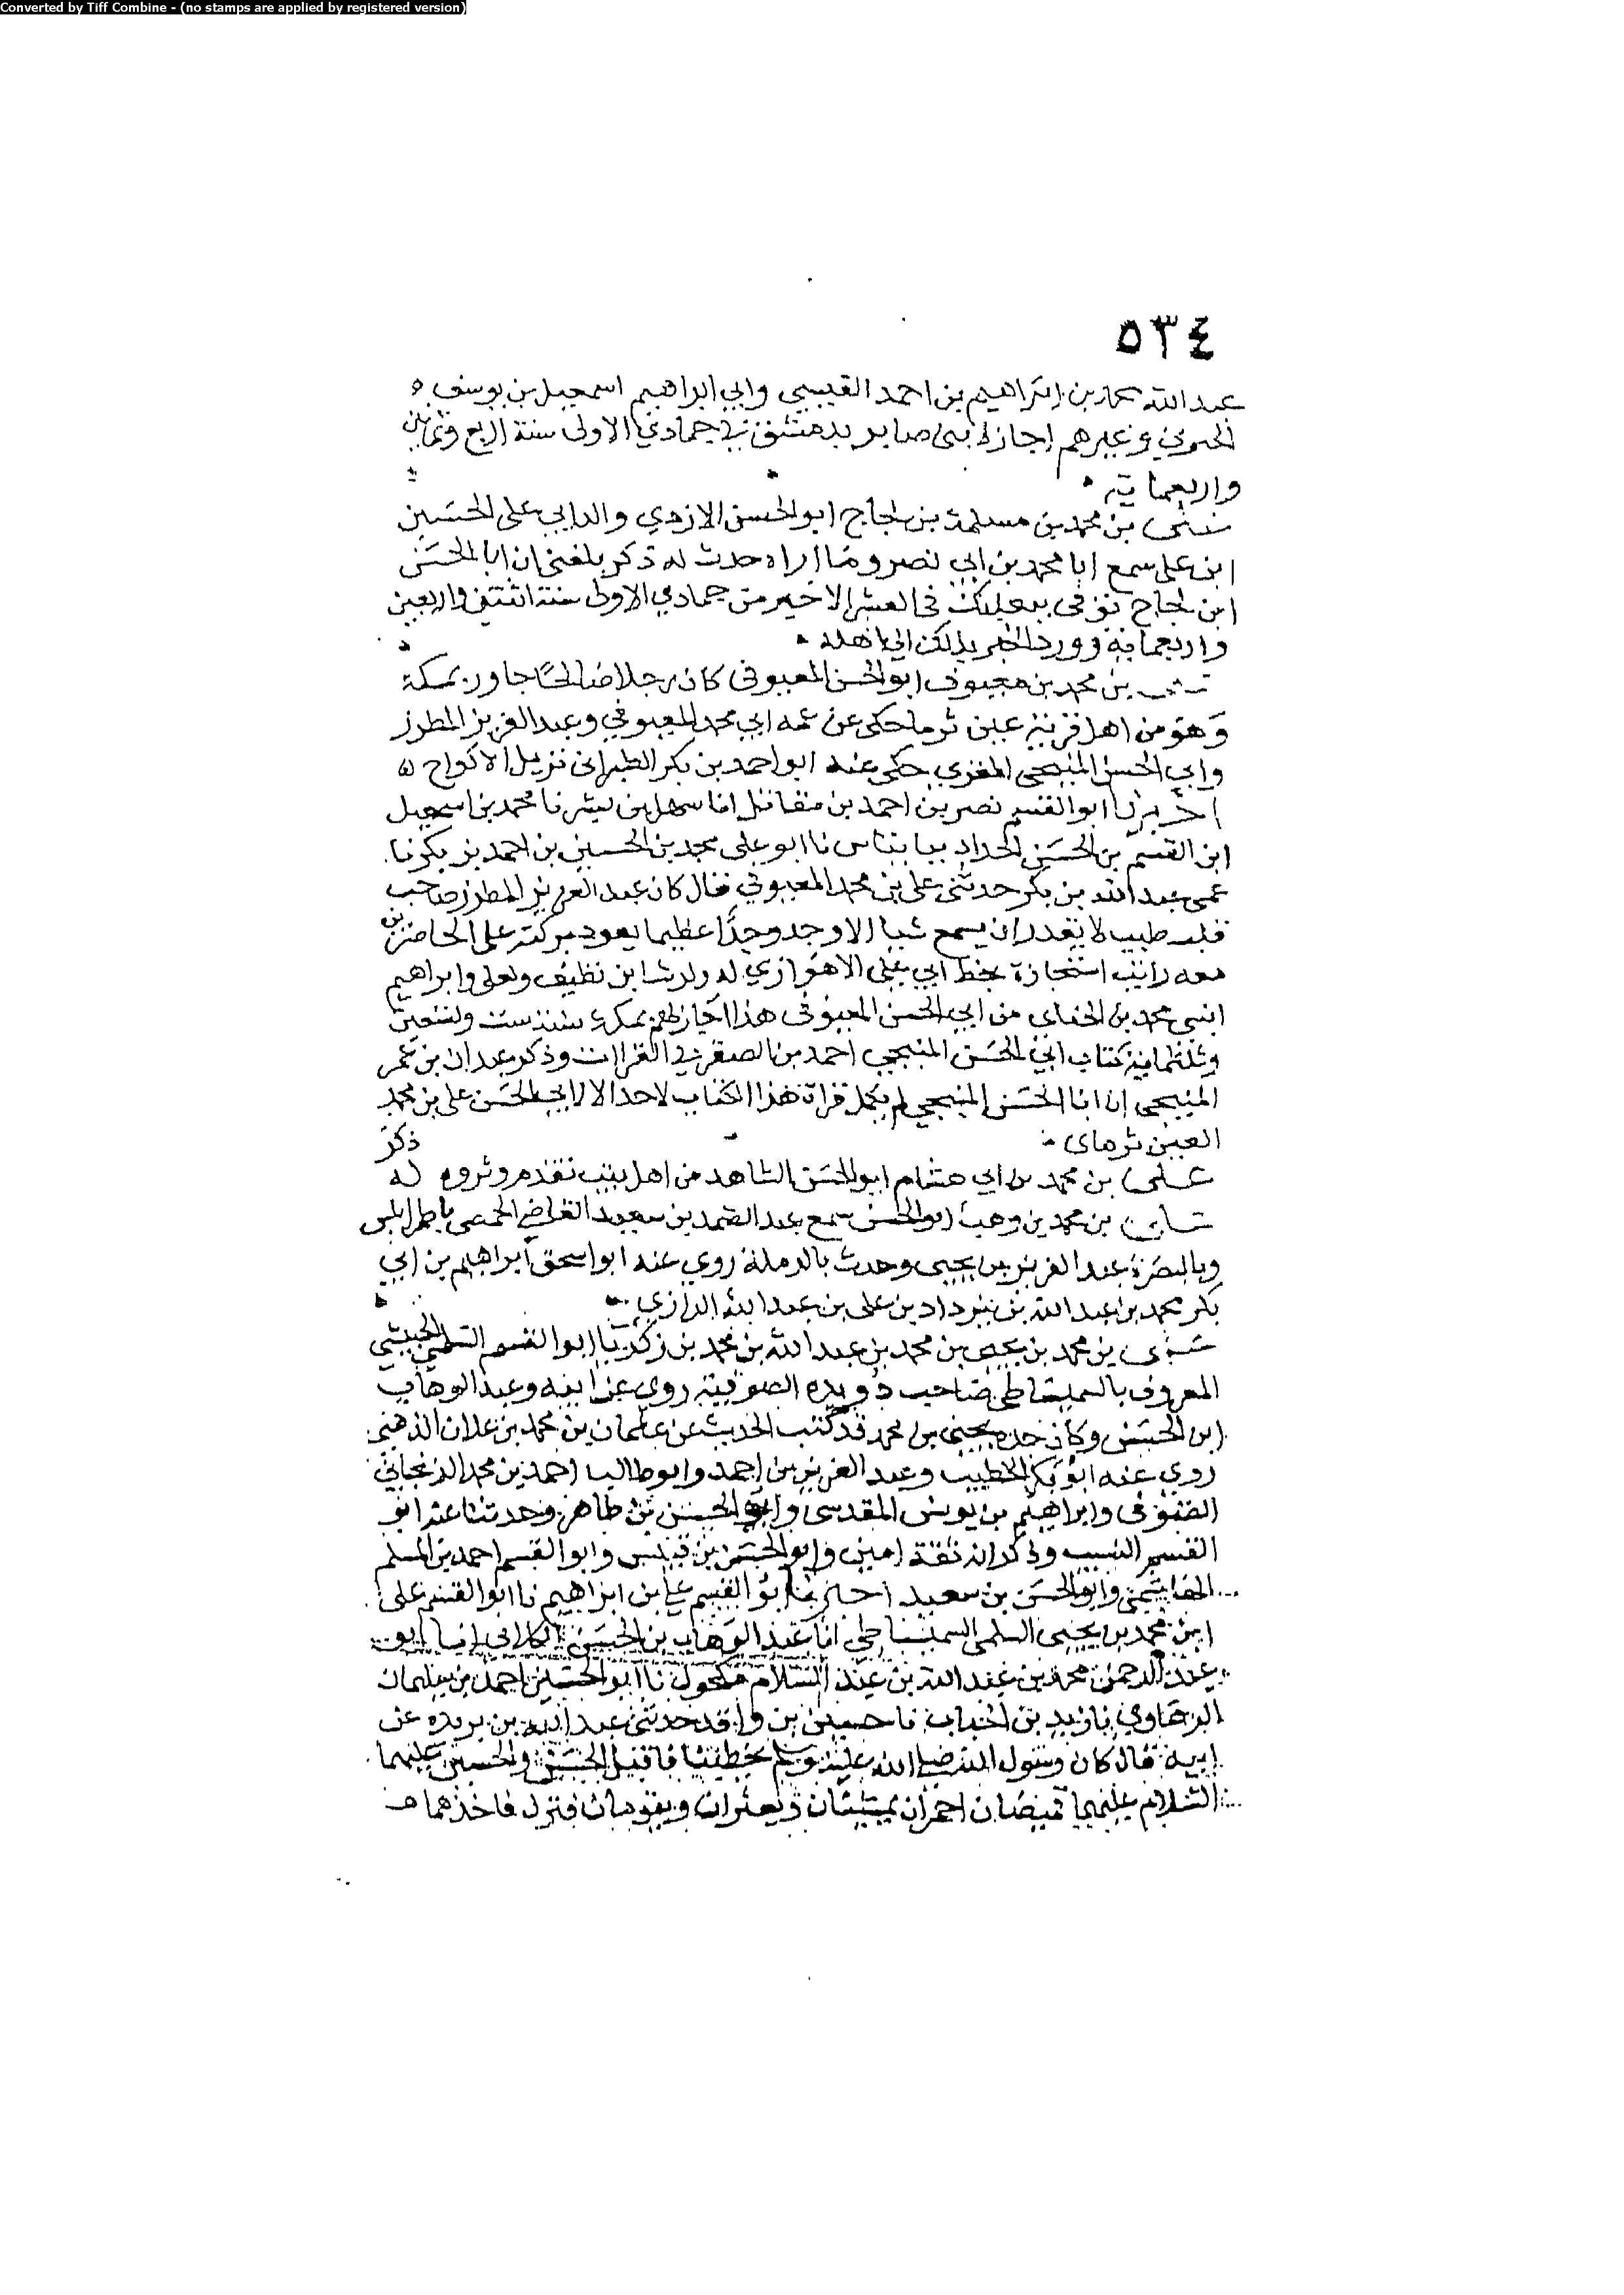 Converted by Tiff Combine - (no stamps are applied by registered version)
٥٣٤
عبد الله بن ابراهيم بن احمد القيسي وابي ابراهيم اسمعيل بن يوسف
وغيرهم اجاز لابني صابر بدمشق في جمادي الاولى سنة اربع وثمانين
واربعماية
بن محمد بن مسلمة بن لجاج ابو الحسن الازدي والد ابي على الحسين
ابن على سمع ابا محمد بن ابي نصر وما اراه حدث له ذكر بلغني ان ابا الحسن
ابن لجاج توفى ببعلبك في العشر الاخير من جمادي الاولى سنة اثنتين واربعين
واربعماية وورد الخبر بذلك الى اهله
بن محمد بن معيوف ابو الحسن المعيوفى كان رجلا صالحا جاور بمكة
وهو من اهل قرية عين ثرما حكى عن عمه ابي محمد المعيوفي وعبد العزيز المطرز
وابي الحسن المنبجي المقري حكى عنه ابو احمد بن بكر الطبراني نزيل الاكواخ
اخبرنا ابو القسم نصر بن احمد بن مقاتل انا سهل بن بشر نا محمد بن اسمعيل
ابن القسم بن الحسن الحداد ببانياس نا ابو على محمد بن الحسين بن احمد بن بكر نا
عمي عبد الله بن بكر حدثني على بن محمد المعيوفي قال كان عبد العزيز المطرز صاحب
قلب طيب لا يقدر ان يسمع شيا الا وجد وجدا عظيما يعود بركته على الحاضرين
معه رايت استجازة بخط ابي على الاهوازي له ولرشا بن نظيف وعلى وابراهيم
ابني محمد بن الحنائي من ابي الحسن المعيوفى هذا اجازلهم بمكة سنة ست وتسعين
وثلثماية كتاب ابي الحسن المنبجي احمد بن الصقر في القراات وذكر عبدان بن عمر
المنبجي ان ابا الحسن المنبجي لم يكمل قراة هذا الكتاب لاحد الا لابي الحسن على بن محمد
العين ثرماى
ذكر
على بن محمد بن ابي هشام ابو الحسن الشاهد من اهل بيت تقدم وثروه له
بن محمد بن وهب ابو الحسن سمع عبد الصمد بن سعيد القاضي الحمصي باطرابلس
وبالبصرة عبد العزيز بن يحيى وحدث بالرملة روي عنه ابو اسحق ابراهيم بن ابي
بكر محمد بن عبد الله بن بنرداد بن على بن عبد الله الرازي
بن محمد بن يحيى بن محمد بن عبد الله بن محمد بن زكريا ابو القسم السلمي الحبيشي
المعروف بالسميساطي صاحب دويره الصوفية روي عن ابيه وعبد الوهاب
ابن الحسن وكان جده يحيى بن محمد قد كتب الحديث عن عثمان بن محمد بن علان الذهبي
روي عنه ابو بكر الخطيب وعبد العزيز بن احمد وابو طالب احمد بن محمد الزنجاني
الصوفى وابراهيم بن يونس المقدسي وابو الحسن بن طاهر وحدثنا عنه ابو
القسم النسيب وذكر انه ثقة امين وابو الحسن بن قبيس وابو القسم احمد بن المسلم
الهاشمي وابو الحسن بن سعيد اخبرنا ابو القسم على بن ابراهيم نا ابو القسم على
ابن محمد بن يحيى السلمى السميساطي انا عبد الوهاب بن الحسن الكلابي انا ابو
عبد الرحمن محمد بن عبد الله بن عبد السلام مكحول نا ابو الحسين احمد بن سليمان
الرهاوي نا زيد بن الحباب نا حسين بن واقد حدثني عبد الله بن بريده عن
ابيه قال كان رسول الله صلى الله عليه وسلم يخطبنا فاقبل الحسن والحسين عليهما
السلام عليهما قميصان احمران يمشيان ويعثران ويقومان فنزل فاخذهما